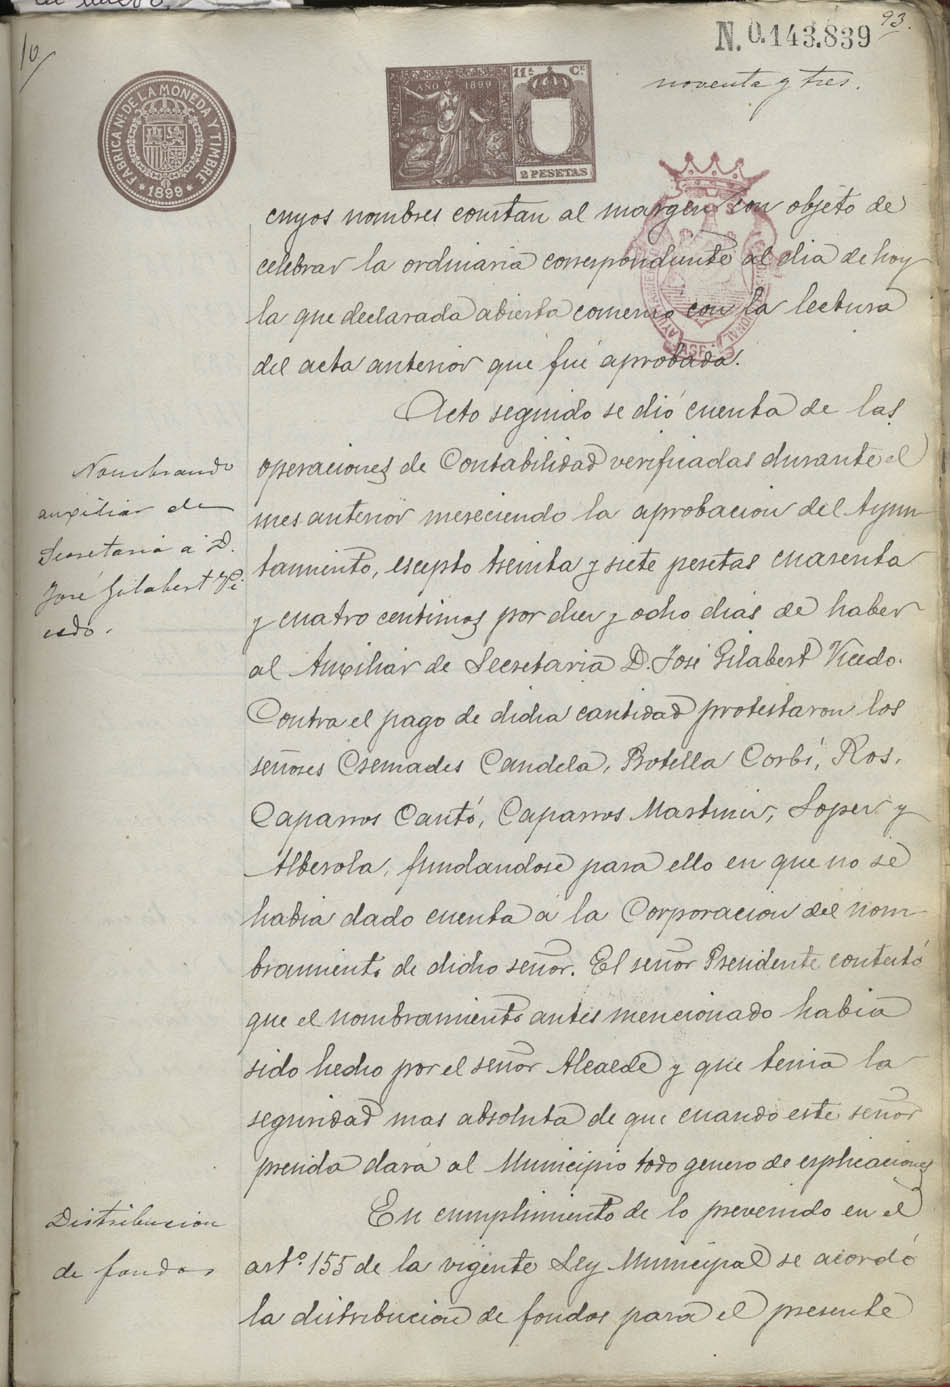 93.
N. 0.143.839
noventa y tres.
10/
FABRICA Nal. DE LA MONEDA Y TIMBRE
* 1899 *
AÑO 1899
11ª Cᴱ
2 PESETAS
cuyos nombres constan al margen con objeto de
celebrar la ordinaria correspondiente al dia de hoy
la que declarada abierta comenzó con la lectura
del acta anterior que fué aprobada.
Acto seguido se dió cuenta de las
operaciones de Contabilidad verificadas durante el
mes anterior mereciendo la aprobacion del Ayun-
tamiento, escepto treinta y siete pesetas cuarenta
y cuatro centimos por diez y ocho dias de haber
al Auxiliar de Secretaria D. José Gilabert Vicedo.
Contra el pago de dicha cantidad protestaron los
señores Cremades Candela, Botella Corbí, Ros,
Caparros Cantó, Caparros Martinez, Lopez y
Alberola, fundandose para ello en que no se
habia dado cuenta á la Corporacion del nom-
bramiento de dicho señor. El señor Presidente contestó
que el nombramiento antes mencionado habia
sido hecho por el señor Alcalde y que tenia la
seguridad mas absoluta de que cuando este señor
presida dará al Municipio todo genero de esplicaciones
En cumplimiento de lo prevenido en el
artº. 155 de la vigente Ley Municipal se acordó
la distribucion de fondos para el presente
Nombrando
auxiliar de
Secretaria á D.
José Gilabert Vi
cedo.
Distribucion
de fondos